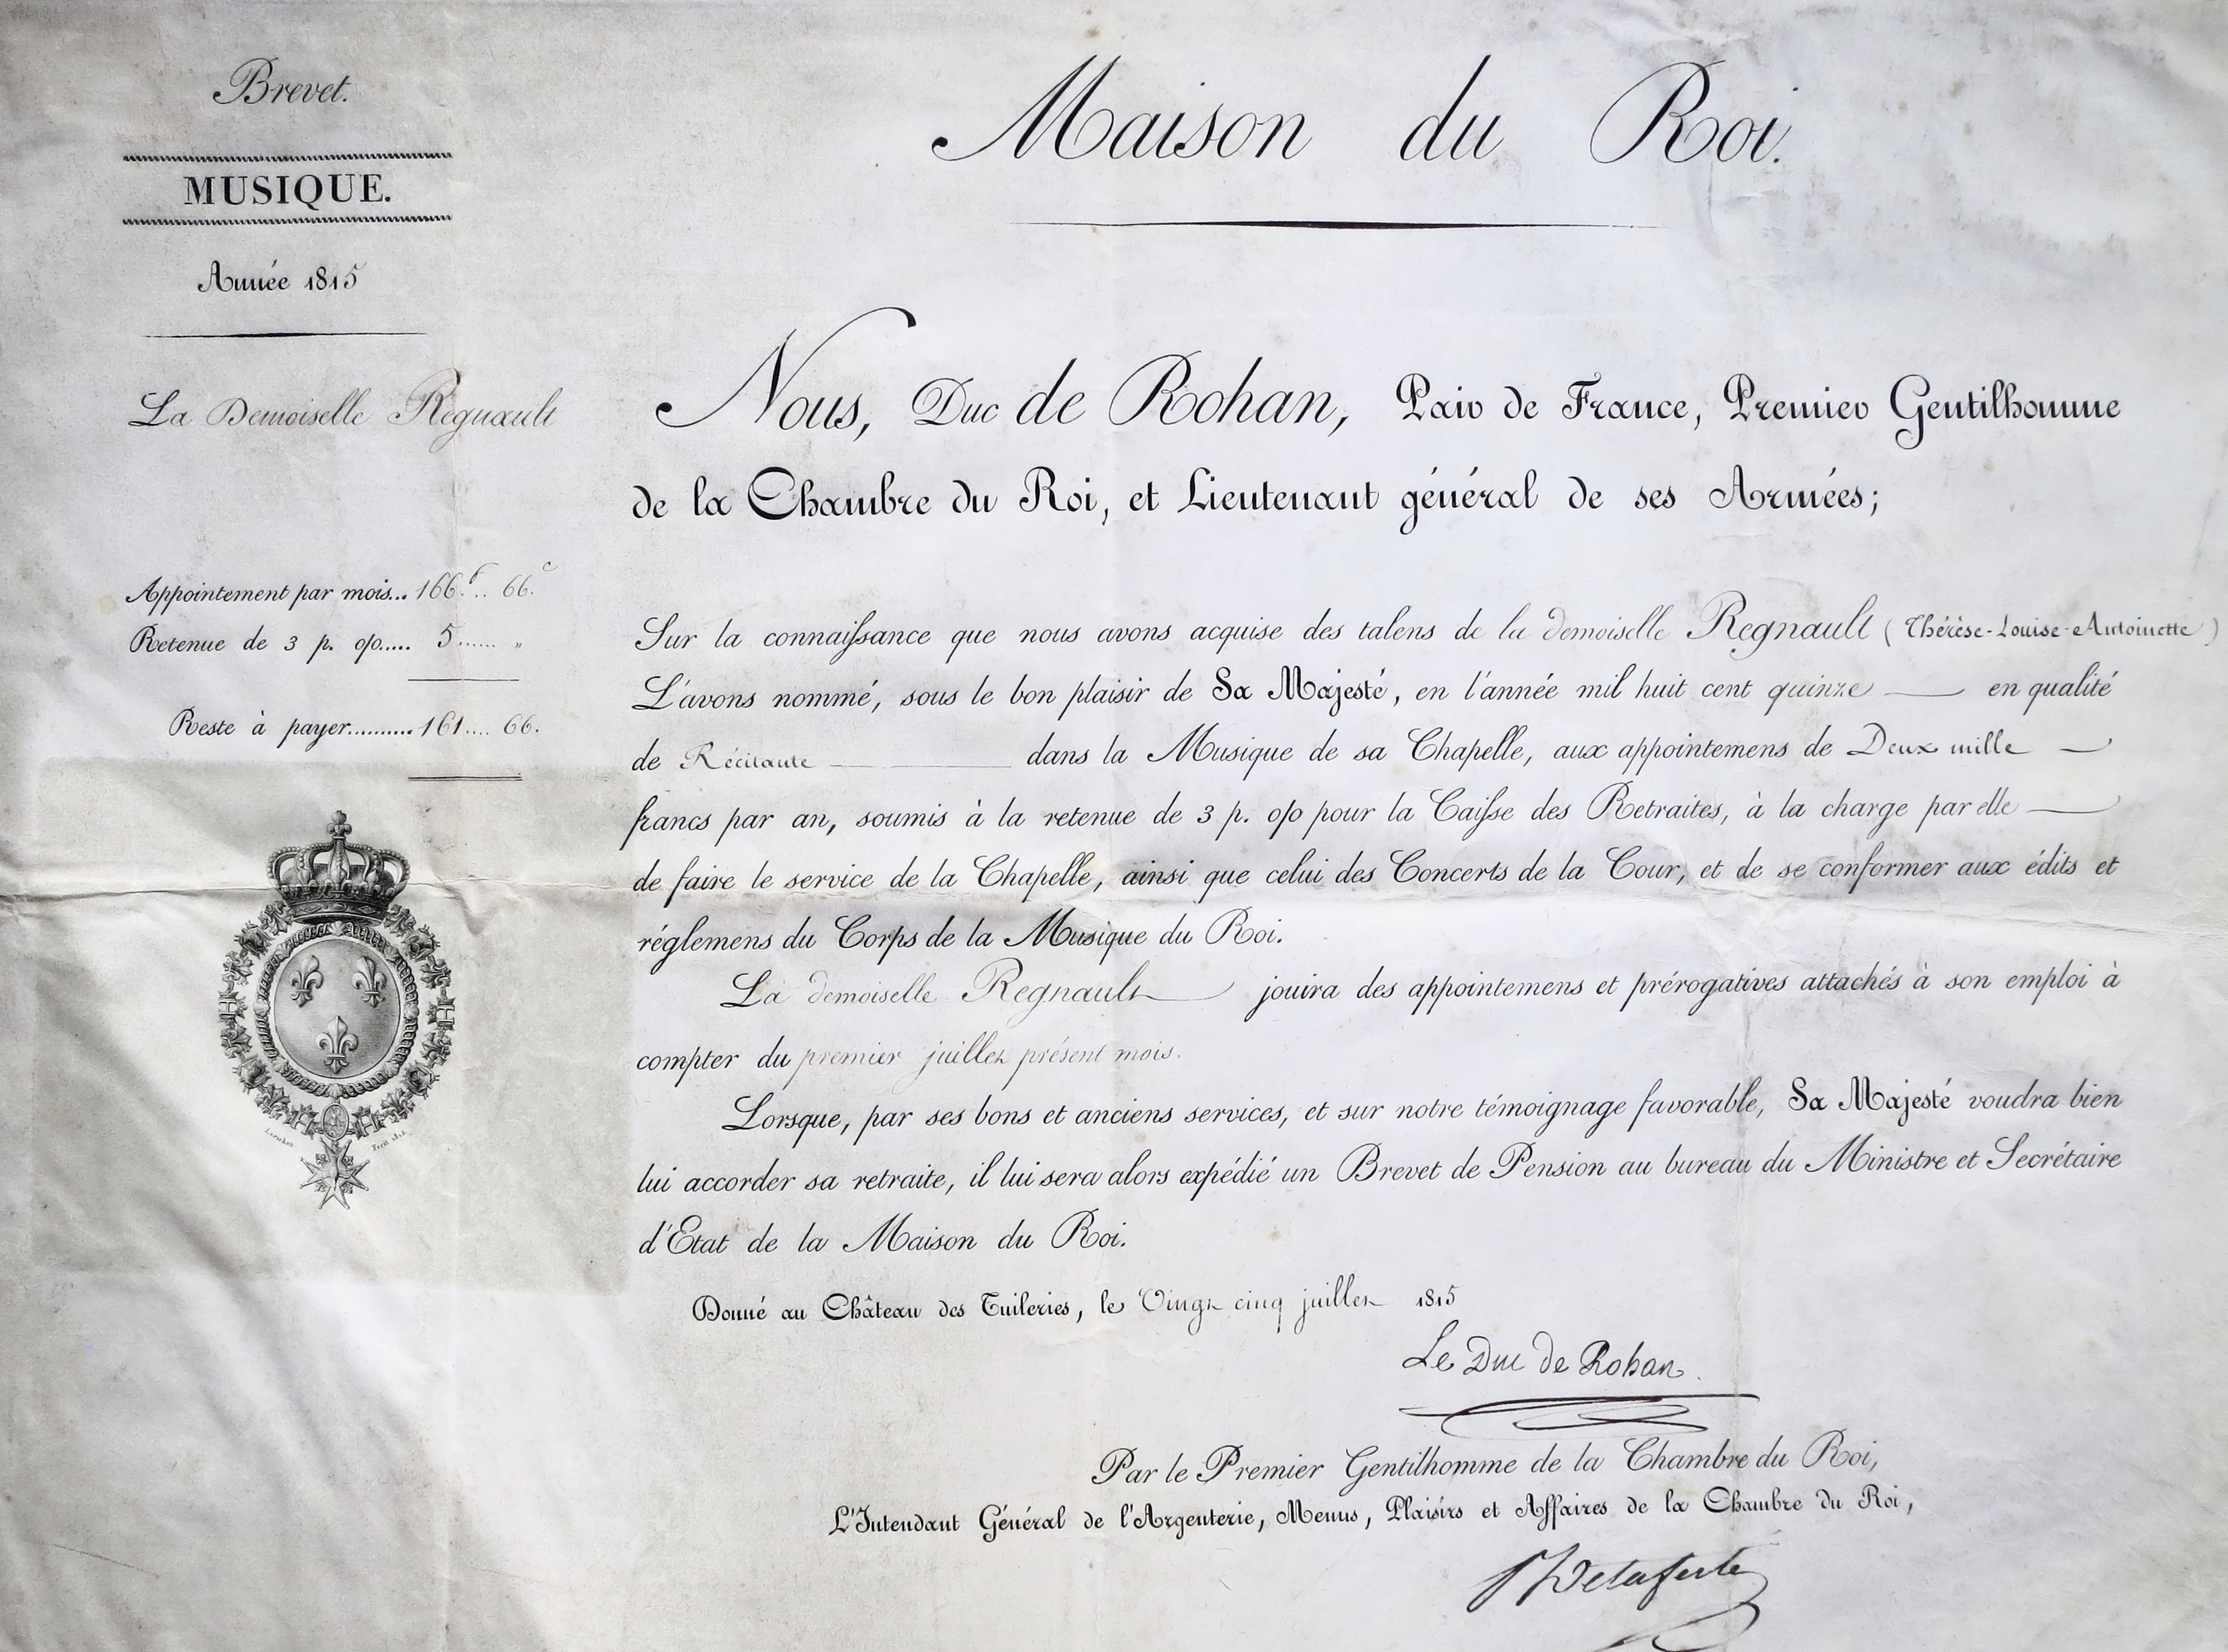 Brevet.
MUSIQUE.
Année 1815
La Demoiselle Regnault
Appointement par mois... 166.f.. 66.c
Retenue de 3 p. o/o..... 5...... "
Reste à payer.......... 161.... 66.
Maison du Roi.
Nous, Duc de Rohan, Pair de France, Premier Gentilhomme
de la Chambre du Roi, et Lieutenant général de ses Armées;
Sur la connaissance que nous avons acquise des talens de la demoiselle Regnault (Thérèse-Louise-Antoinette)
L'avons nommé, sous le bon plaisir de Sa Majesté, en l'année mil huit cent quinze — en qualité
de Récitante — dans la Musique de sa Chapelle, aux appointemens de Deux mille —
francs par an, soumis à la retenue de 3 p. o/o pour la Caisse des Retraites, à la charge par elle —
de faire le service de la Chapelle, ainsi que celui des Concerts de la Cour, et de se conformer aux édits et
réglemens du Corps de la Musique du Roi.
La demoiselle Regnault — jouira des appointemens et prérogatives attachés à son emploi à
compter du premier juillet présent mois.
Lorsque, par ses bons et anciens services, et sur notre témoignage favorable, Sa Majesté voudra bien
lui accorder sa retraite, il lui sera alors expédié un Brevet de Pension au bureau du Ministre et Secrétaire
d'Etat de la Maison du Roi.
Donné au Château des Tuileries, le Vingt cinq juillet 1815
Le Duc de Rohan.
Par le Premier Gentilhomme de la Chambre du Roi,
L'Intendant Général de l'Argenterie, Menus, Plaisirs et Affaires de la Chambre du Roi,
Delaferté